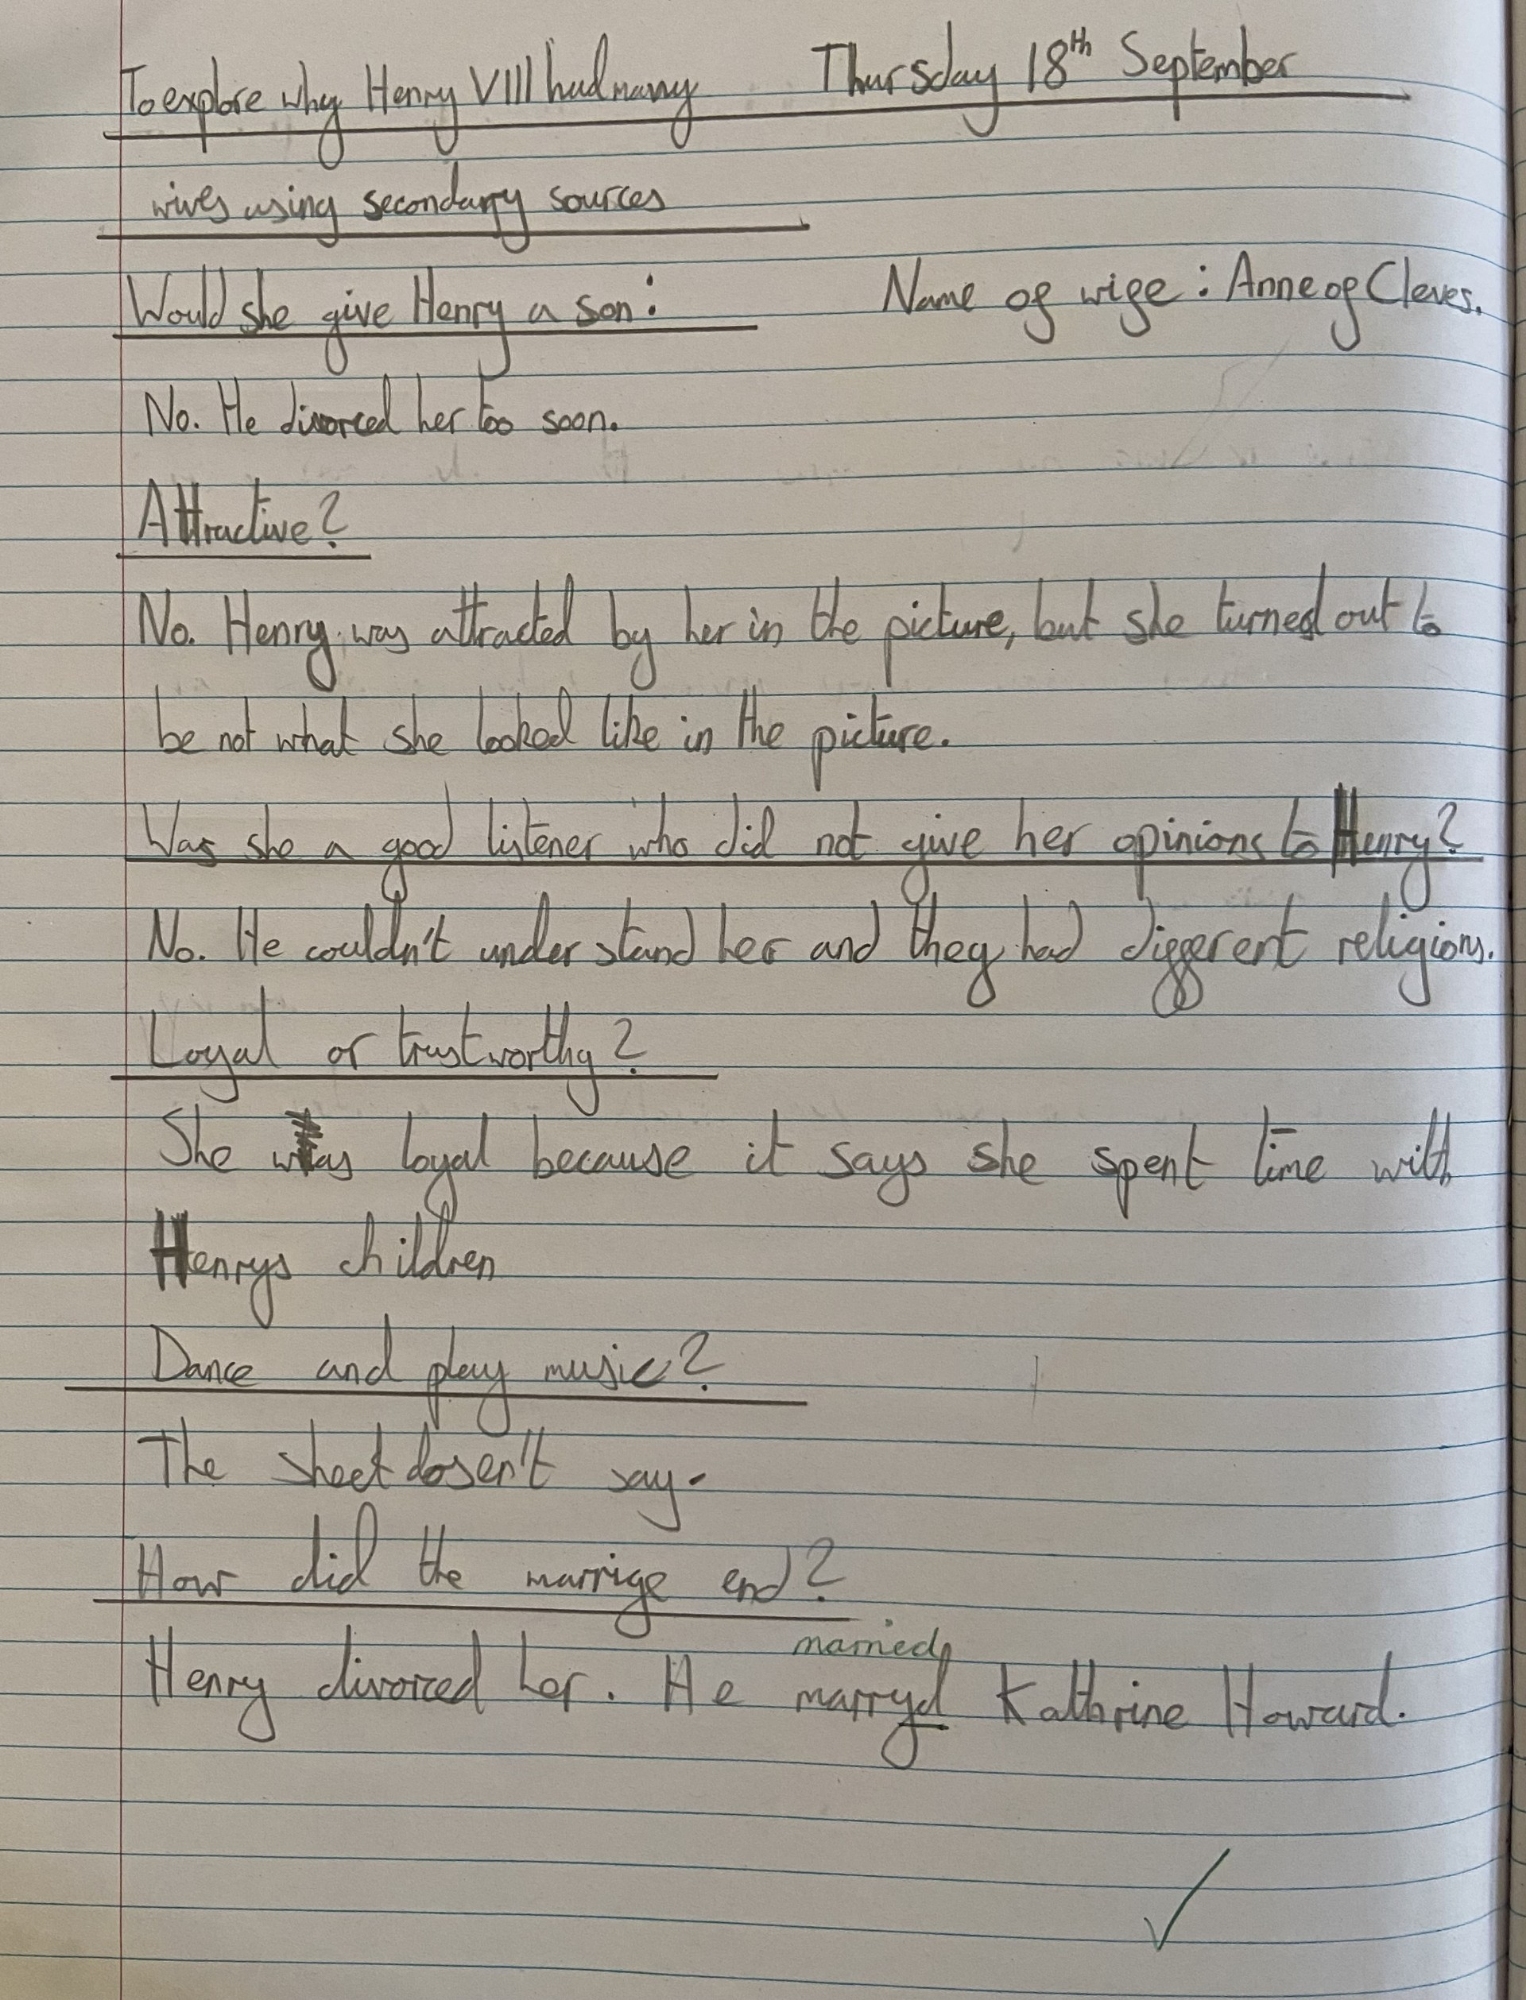 To explore why Henry VIII had many Thursday 18th September
wives using secondary sources
Would she give Henry a son: Name of wife : Anne of Cleves.
No. He divorced her too soon.
Attractive?
No. Henry was attracted by her in the picture, but she turned out to
be not what she looked like in the picture.
Was she a good listener who did not give her opinions to Henry?
No. He couldn't understand her and they had different religions.
Loyal or trustworthy?
She was loyal because it says she spent time with
Henrys children
Dance and play music?
The sheet dosen't say.
How did the marrige end?
married
Henry divorced her. He marryd Kathrine Howard.